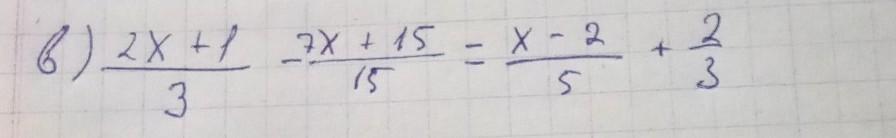 в) (2x + 1)/3 - (7x + 15)/15 = (x - 2)/5 + 2/3